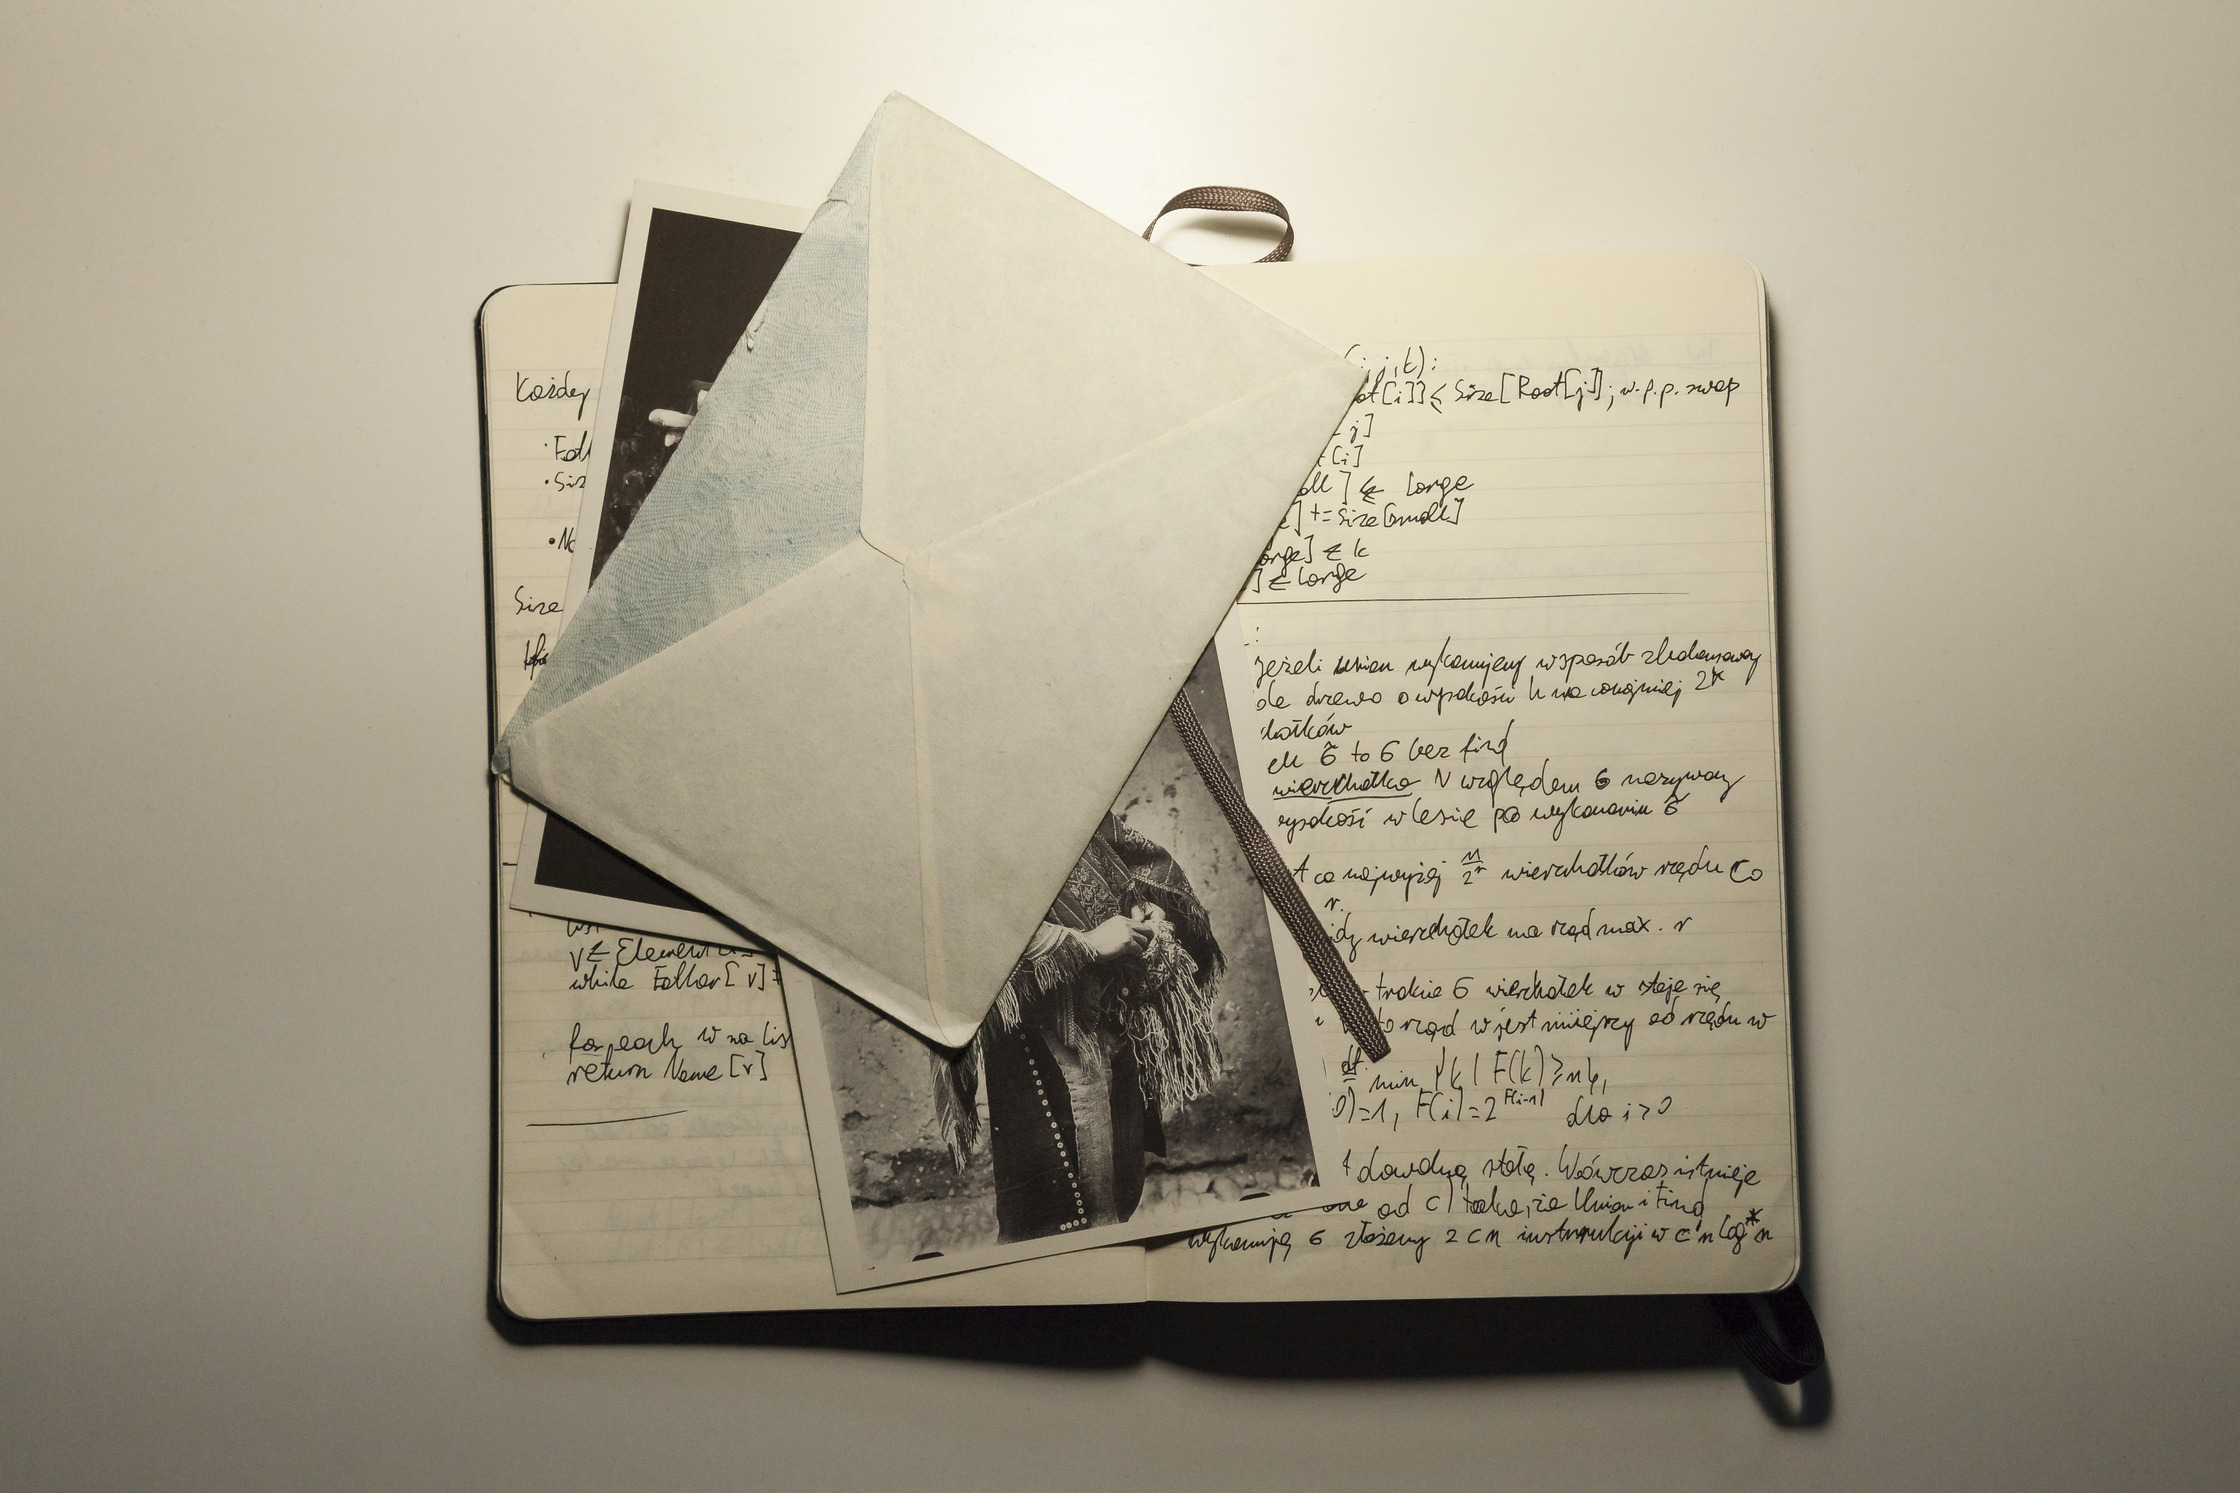 Każdy
Size
while Father[v]
foreach w na lis
return Name[v]
,j,t):
ot[i]] ≤ Size[Root[j]]; w.p.p. swap
j]
t[i]
all] ← large
e] += Size[small]
arge] ← k
] ← large
Jeżeli union wykonujemy w sposób zbalansowany
de drzewo o wysokości h ma conajmniej 2^h
chołków
σ̂ to σ bez find
wierzchołka v względem σ nazywamy
wysokość w lesie po wykonaniu σ̂
t co najwyżej n/2^r wierzchołków rzędu r
żdy wierzchołek ma rząd max. r
trakcie σ wierzchołek w staje się
to rząd w jest mniejszy od rzędu v
df. min {k | F(k) ≥ n},
0)=1, F(i)=2^F(i-1) dla i>0
t dowolną stałą. Wówczas istnieje
od c) taka, że Union i Find
wykonują σ złożony z cn instrukcji w c'n log*n